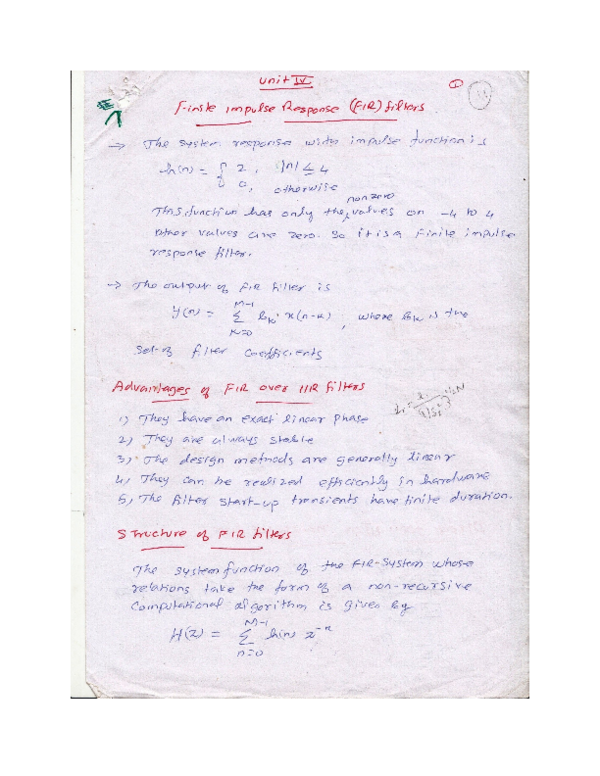 Unit IV
Finite Impulse Response (FIR) filters
→ The system response with impulse function is
h(n) = { 2, |n| ≤ 4
0, otherwise
nonzero
This function has only the values on -4 to 4
other values are zero. So it is a Finite impulse
response filter.
→ The output of FIR filter is
y(n) = M-1 Σ k=0 bk · x(n-k), where bk is the
set of filter coefficients
Advantages of FIR over IIR filters
1) They have an exact linear phase
2) They are always stable
3) The design methods are generally linear
4) They can be realized efficiently in hardware
5) The filter start-up transients have finite duration.
Structure of FIR filters
The system function of the FIR-System whose
relations take the form of a non-recursive
computational algorithm is given by
H(z) = M-1 Σ n=0 h(n) z^-n